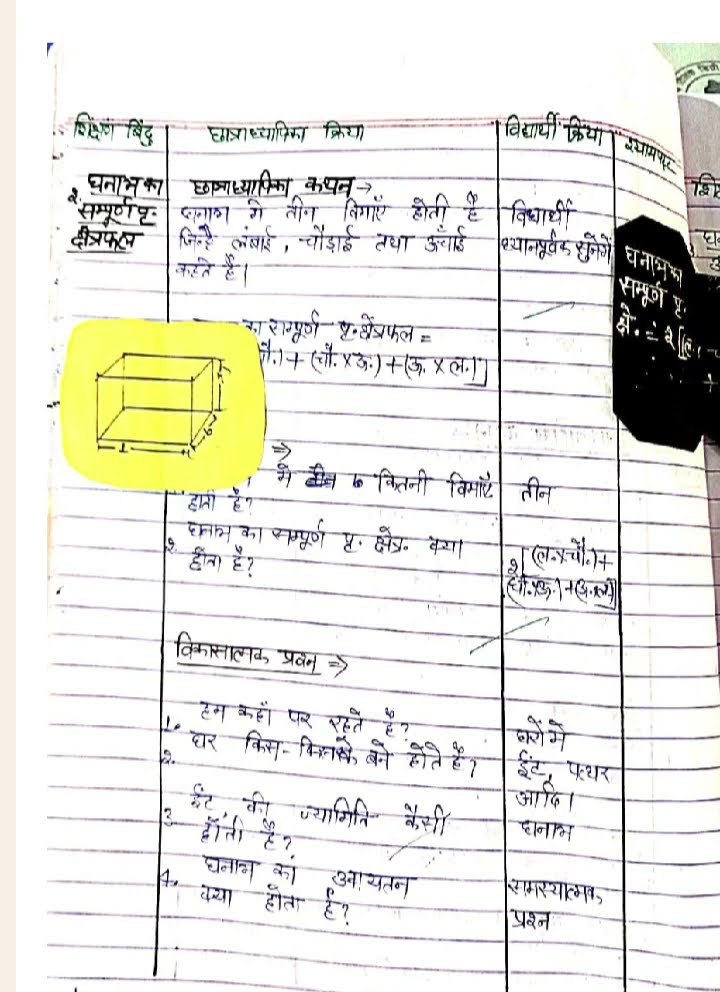 शिक्षण बिंदु
छात्राध्यापिका क्रिया
विद्यार्थी क्रिया
श्यामपट
2. घनाभ का
सम्पूर्ण पृ.
क्षेत्रफल
छात्राध्यापिका कथन →
घनाभ मे तीन विमाएँ होती है
जिन्हे लंबाई, चौड़ाई तथा ऊँचाई
कहते है।
विद्यार्थी
ध्यानपूर्वक सुनेगें
का सम्पूर्ण पृ. क्षेत्रफल =
चौ.) + (चौ. x ऊ.) + (ऊ. x ल.)]
घनाभ का
सम्पूर्ण पृ.
क्षे. = 2[(ल.
⇒
मे कितनी विमाएँ
होती है?
तीन
2. घनाभ का सम्पूर्ण पृ. क्षेत्र. क्या
होता है?
2[(ल. x चौ.) +
(चौ. x ऊ.) + (ऊ. x ल.)]
विकासात्मक प्रश्न ⇒
1. हम कहाँ पर रहते है?
घरो मे
2. घर किस-किसके बने होते है?
ईंट, पत्थर
आदि।
3. ईंट की ज्यामिति कैसी
होती है?
घनाभ
4. घनाभ का आयतन
क्या होता है?
समस्यात्मक
प्रश्न